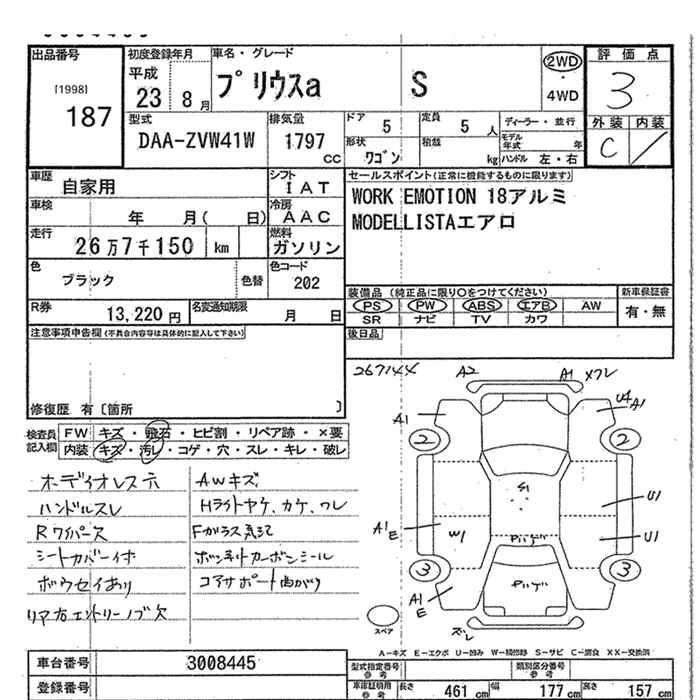 出品番号 初度登録年月 車名・グレード 評価点
[1998]
187
平成
23 8月
プリウスa S
2WD
・
4WD
3
外装 内装
C /
型式 排気量 ドア 5 定員 5 人 ディーラー・並行
DAA-ZVW41W 1797 cc
形状 ワゴン 積載 kg
モデル年式 年
ハンドル 左・右
車歴 自家用
シフト IAT
セールスポイント(正常に機能するものに限ります)
WORK EMOTION 18アルミ
MODELLISTAエアロ
車検 年 月( 日)
冷房 AAC
走行 26万7千150 km
燃料 ガソリン
色 ブラック 色替
色コード 202
装備品 (純正品に限り○をつけてください) 新車保証書
PS PW ABS エアB AW 有・無
SR ナビ TV カワ
R券 13,220円 名変通知期限 月 日
後日品
注意事項申告欄(不具合内容等は具体的に記入して下さい)
修復歴 有〔箇所 〕
267144
A2 A1 メクレ
U4 A1
A1
2 2
S1
U1
A1 E W1 U1
PいゲP
3 3
A1 E
ズレ
スペア
検査員記入欄
FW キズ・飛石・ヒビ割・リペア跡・×要
内装 キズ・汚レ・コゲ・穴・スレ・キレ・破レ
オーディオレス穴
ハンドルスレ
Rワイパーレス
シートカバー付
ボウセイあり
リア右エントリーノブ欠
AWキズ
Hライトヤケ、カケ、ワレ
Fガラス気泡
ボンネットカーボンシール
コアサポート曲がり
A-キズ E-エクボ U-凹み W-補修跡 S-サビ C-腐食 XX-交換済
車台番号 3008445
登録番号
型式指定番号 参考
類別区分番号 参考
車庫証明用 参考 長さ 461cm 幅 177cm 高さ 157cm